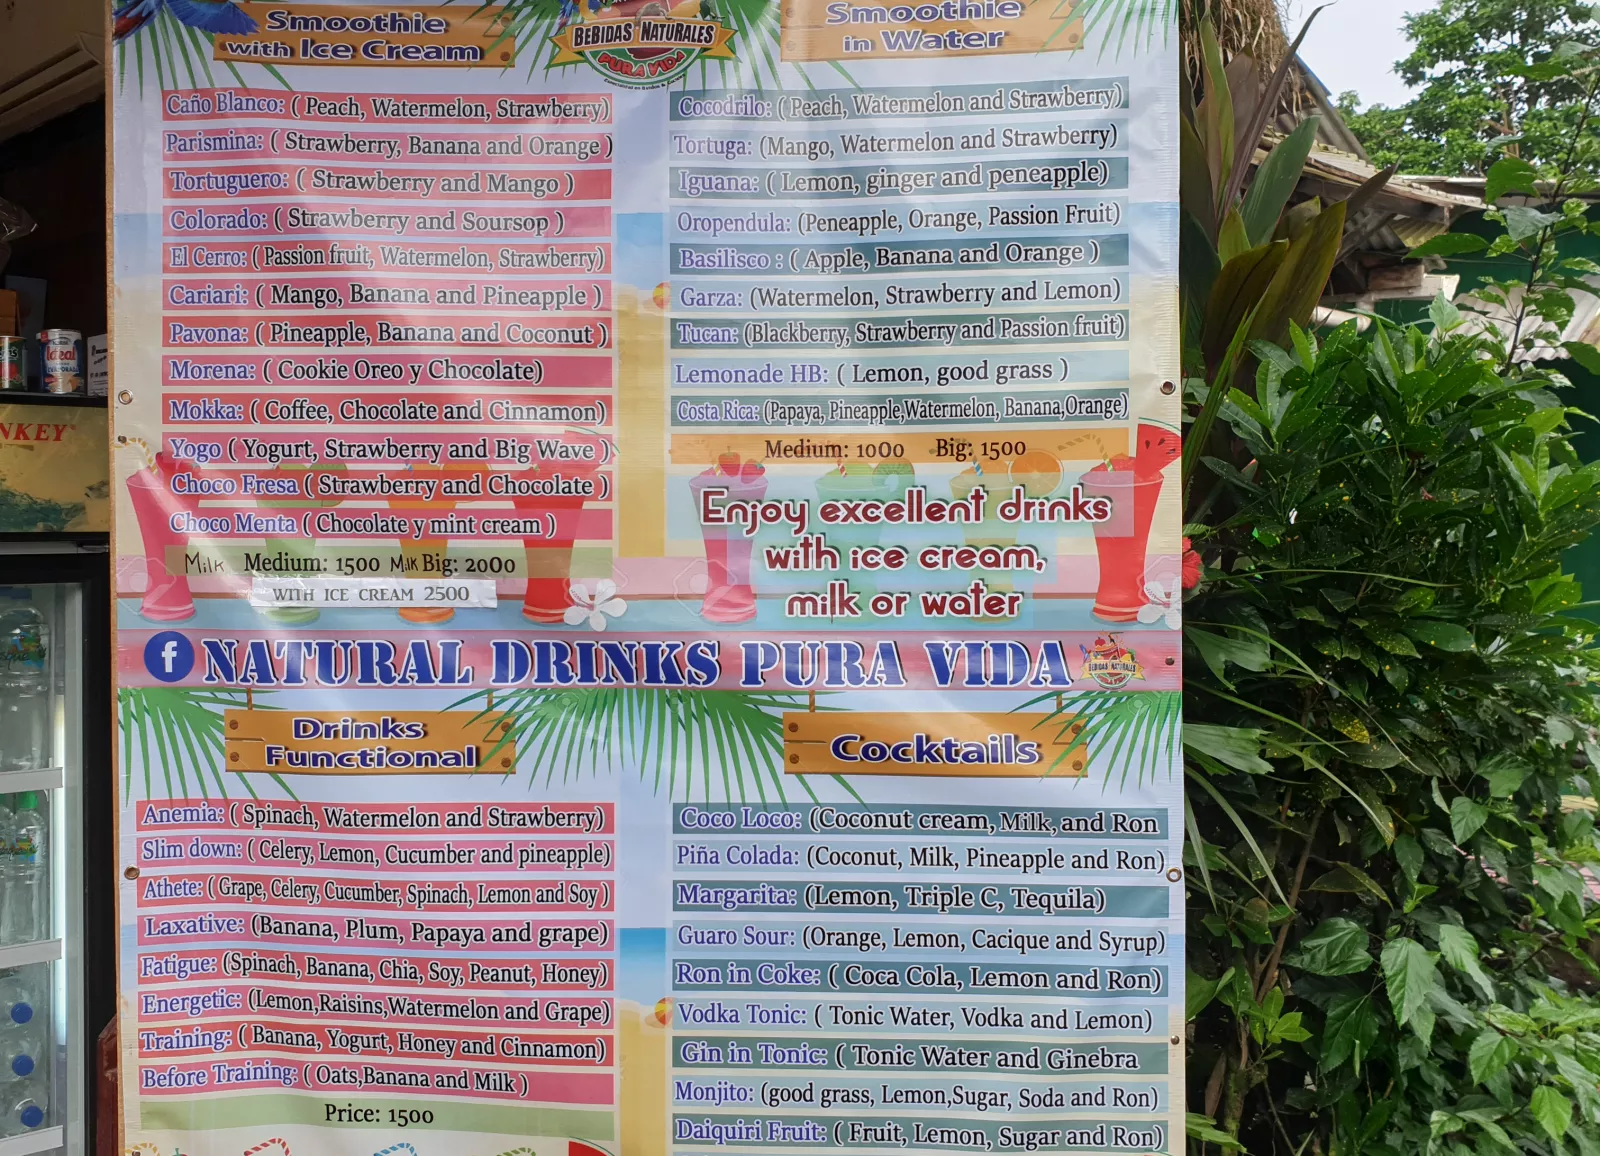 Smoothie
with Ice Cream
BEBIDAS NATURALES
PURA VIDA
Smoothie
in Water
Caño Blanco: ( Peach, Watermelon, Strawberry)
Parismina: ( Strawberry, Banana and Orange )
Tortuguero: ( Strawberry and Mango )
Colorado: ( Strawberry and Soursop )
El Cerro: ( Passion fruit, Watermelon, Strawberry)
Cariari: ( Mango, Banana and Pineapple )
Pavona: ( Pineapple, Banana and Coconut )
Morena: ( Cookie Oreo y Chocolate)
Mokka: ( Coffee, Chocolate and Cinnamon)
Yogo ( Yogurt, Strawberry and Big Wave )
Choco Fresa ( Strawberry and Chocolate )
Choco Menta ( Chocolate y mint cream )
Milk Medium: 1500 Milk Big: 2000
WITH ICE CREAM 2500
Cocodrilo: ( Peach, Watermelon and Strawberry)
Tortuga: (Mango, Watermelon and Strawberry)
Iguana: ( Lemon, ginger and peneapple)
Oropendula: (Peneapple, Orange, Passion Fruit)
Basilisco : ( Apple, Banana and Orange )
Garza: (Watermelon, Strawberry and Lemon)
Tucan: (Blackberry, Strawberry and Passion fruit)
Lemonade HB: ( Lemon, good grass )
Costa Rica: (Papaya, Pineapple,Watermelon, Banana,Orange)
Medium: 1000 Big: 1500
Enjoy excellent drinks
with ice cream,
milk or water
f NATURAL DRINKS PURA VIDA
BEBIDAS NATURALES
Drinks
Functional
Anemia: ( Spinach, Watermelon and Strawberry)
Slim down: ( Celery, Lemon, Cucumber and pineapple)
Athete: ( Grape, Celery, Cucumber, Spinach, Lemon and Soy )
Laxative: (Banana, Plum, Papaya and grape)
Fatigue: (Spinach, Banana, Chia, Soy, Peanut, Honey)
Energetic: (Lemon,Raisins,Watermelon and Grape)
Training: ( Banana, Yogurt, Honey and Cinnamon)
Before Training: ( Oats,Banana and Milk )
Price: 1500
Cocktails
Coco Loco: (Coconut cream, Milk, and Ron
Piña Colada: (Coconut, Milk, Pineapple and Ron)
Margarita: (Lemon, Triple C, Tequila)
Guaro Sour: (Orange, Lemon, Cacique and Syrup)
Ron in Coke: ( Coca Cola, Lemon and Ron)
Vodka Tonic: ( Tonic Water, Vodka and Lemon)
Gin in Tonic: ( Tonic Water and Ginebra
Monjito: (good grass, Lemon,Sugar, Soda and Ron)
Daiquiri Fruit: ( Fruit, Lemon, Sugar and Ron)
Ideal
NKEY